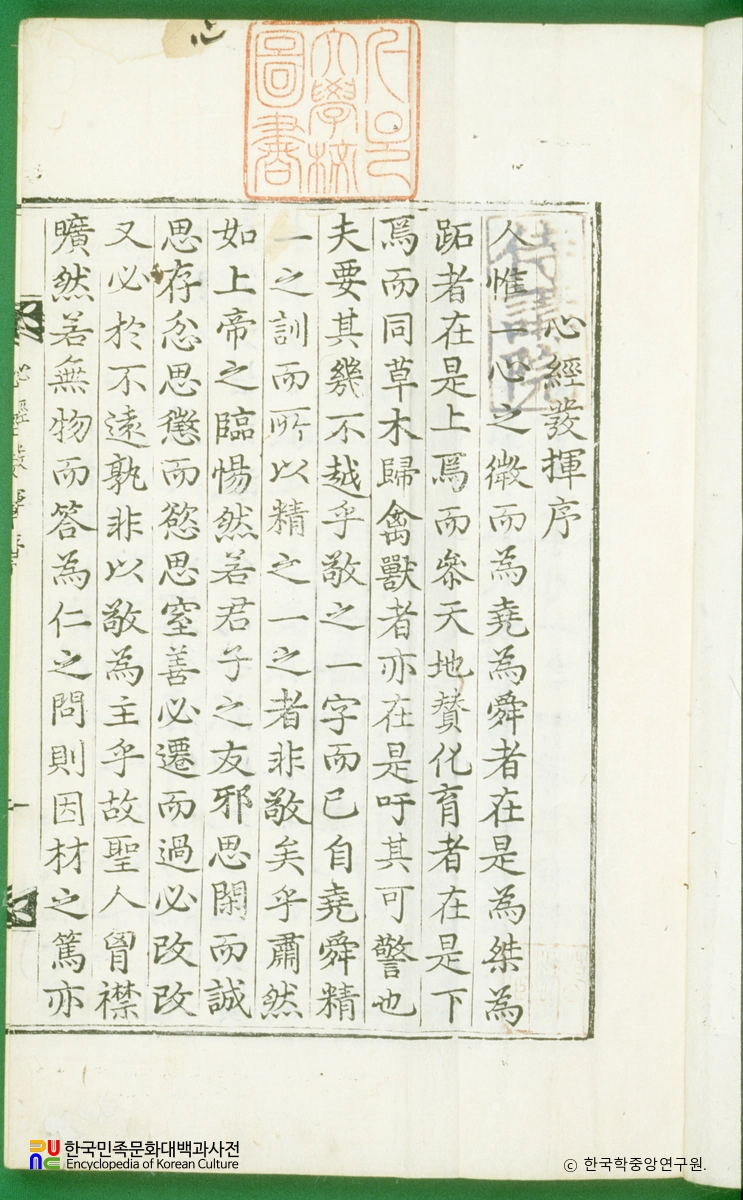 心
서울
大學校
圖書
侍講院
心經發揮序
人惟一心之微而為堯為舜者在是為桀為
跖者在是上焉而參天地贊化育者在是下
焉而同草木歸禽獸者亦在是吁其可警也
夫要其幾不越乎敬之一字而已自堯舜精
一之訓而所以精之一之者非敬矣乎肅然
如上帝之臨惕然若君子之友邪思閑而誠
思存忿思懲而慾思窒善必遷而過必改改
又必於不遠孰非以敬為主乎故聖人胷襟
曠然若無物而答為仁之問則因材之篤亦
心經發揮序
一
한국민족문화대백과사전
Encyclopedia of Korean Culture
© 한국학중앙연구원.